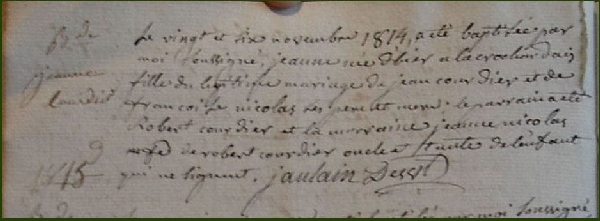 B. de
jeanne
Courdier
Le vingt et six novembre 1814, a été baptisée par
moi soussigné, jeanne née d'hier a la
fille du légitime mariage de jean courdier et de
françoise nicolas ses pere et mere. le parrain a été
Robert courdier et la marraine jeanne nicolas
de robert courdier oncle et tante de l'enfant
qui ne signent. jaulain Dessst
1815
moi soussigné